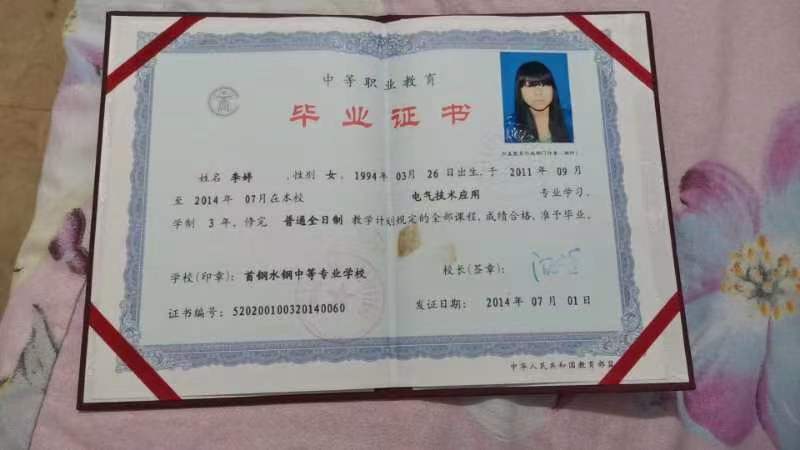 中等职业教育
毕业证书
姓名 李婷 ,性别 女, 1994 年 03 月 26 日出生,于 2011 年 09 月
至 2014 年 07 月在本校 电气技术应用 专业学习,
学制 3 年,修完 普通全日制 教学计划规定的全部课程,成绩合格,准予毕业。
学校(印章): 首钢水钢中等专业学校
校长(签章):
证书编号: 520200100320140060
发证日期: 2014 年 07 月 01 日
中华人民共和国教育部监